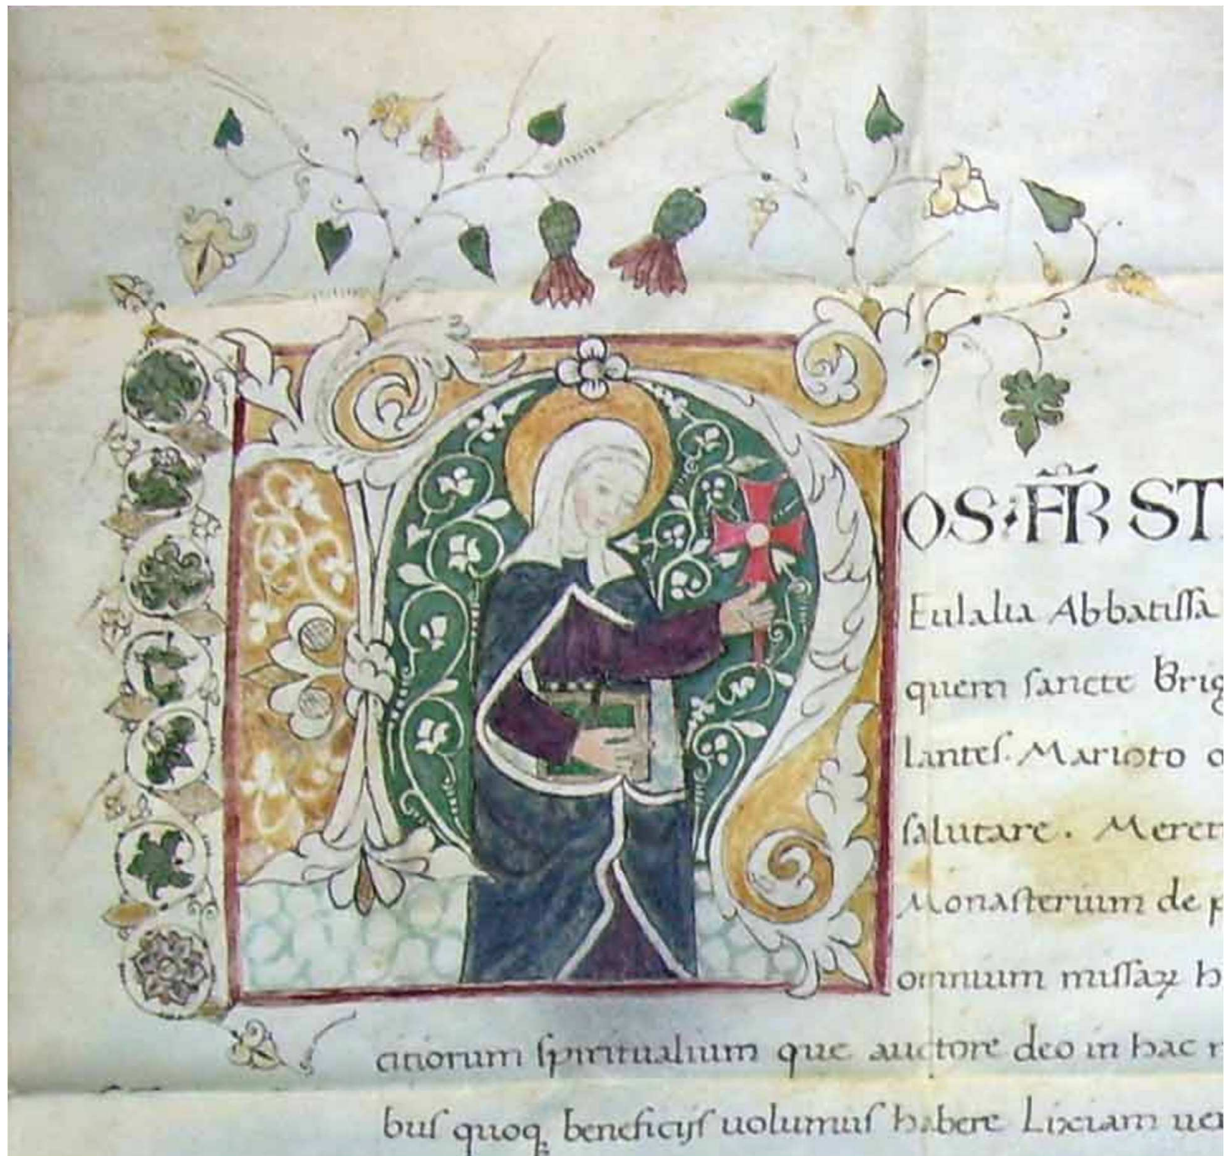 NOS · FR̃ ST
Eulalia Abbatissa
quem sancte Brig
lantes. Marioto
salutare. Meret
Monasterium de p
omnium missaꝝ h
citiorum spiritualium que auctore deo in hac
bus quoqꝫ beneficijs uolumus habere Liciam